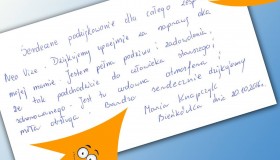 Serdeczne podziękowanie dla całego zesp
Neo Vize. Dziękujemy uprzejmie za naprawę oka
mojej mamie. Jestem pełna podziwu i zadowolenia,
że tak podchodzicie do człowieka starszego i
schorowanego. Jest tu cudowna atmosfera i
miła obsługa. Bardzo serdecznie dziękujemy
Maria Knapczyk
Bieńkówka dnia 20.10.2016r.